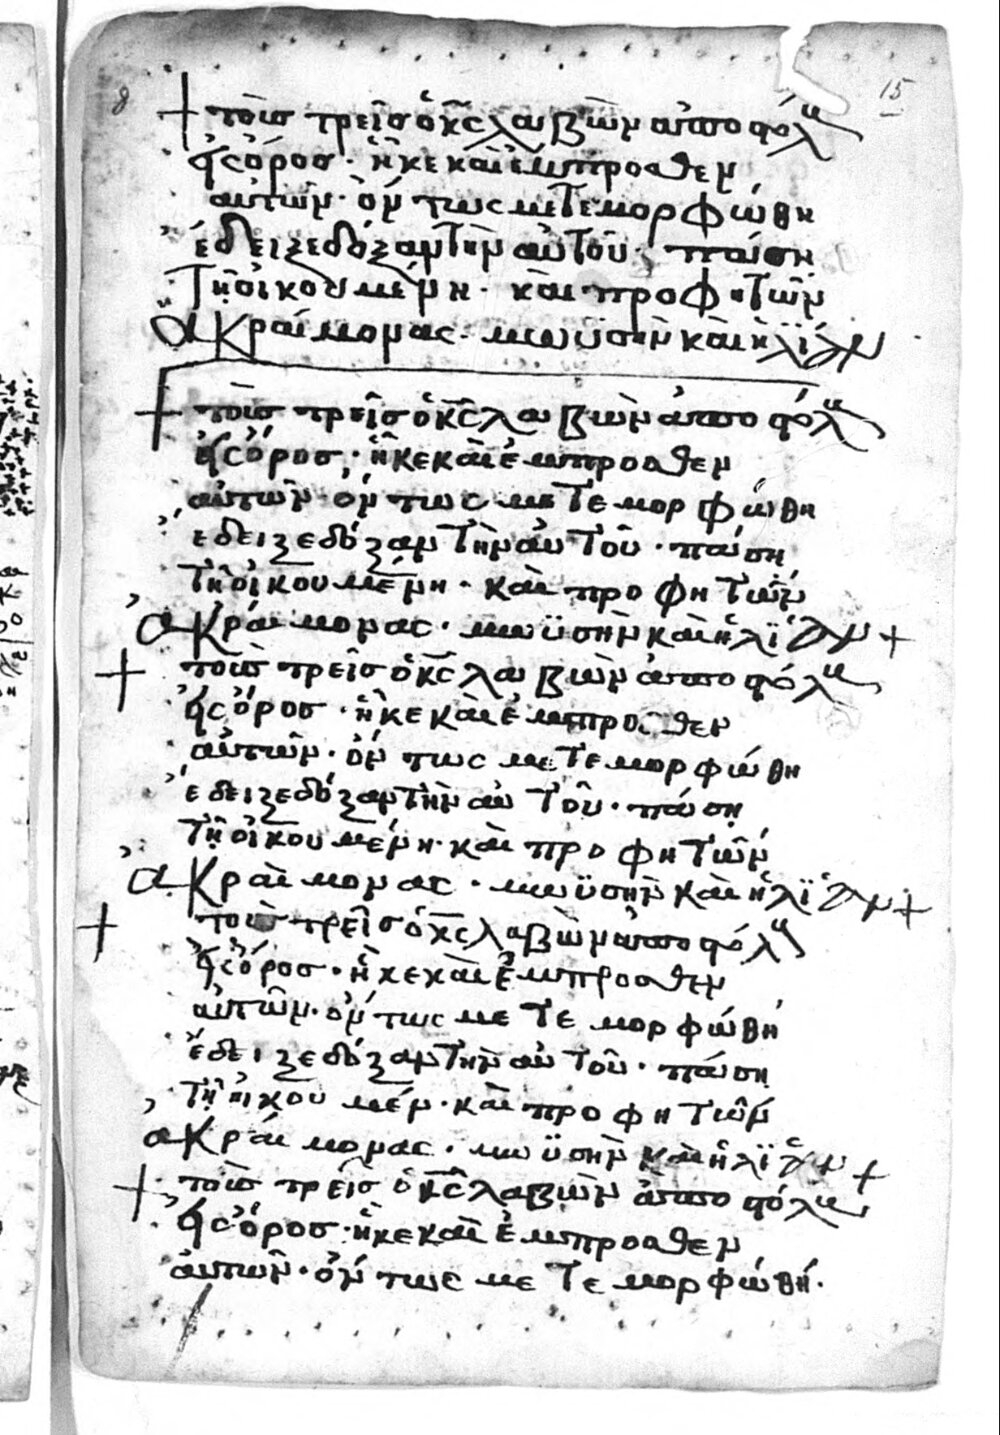 θ 15
+ τοὺσ τρεῖσ ὁ κ̅ς̅ λαβὼν ἀποφόλα
εἰς ὄροσ · ἧκε καὶ ἔμπροσθεν
αὐτῶν · ὄντως μετεμορφώθη
ἔδειξε δόξαν τὴν αὐτοῦ · πάση
τῆ οἰκουμένη · καὶ προφητῶν
ἀκραίμονας · μωϋσὴν καὶ ἠλϊάν
+ τοὺσ τρεῖσ ὁ κ̅ς̅ λαβὼν ἀποφόλα
εἰς ὄροσ · ἧκε καὶ ἔμπροσθεν
αὐτῶν · ὄντως μετεμορφώθη
ἔδειξε δόξαν τὴν αὐτοῦ · πάση
τῆ οἰκουμένη · καὶ προφητῶν
ἀκραίμονας · μωϋσὴν καὶ ἠλϊάν +
+ τοὺσ τρεῖσ ὁ κ̅ς̅ λαβὼν ἀποφόλα
εἰς ὄροσ · ἧκε καὶ ἔμπροσθεν
αὐτῶν · ὄντως μετεμορφώθη
ἔδειξε δόξαν τὴν αὐτοῦ · πάση
τῆ οἰκουμένη · καὶ προφητῶν
ἀκραίμονας · μωϋσὴν καὶ ἠλϊάν +
+ τοὺσ τρεῖσ ὁ χ̅ς̅ λαβὼν ἀποφόλ
εἰς ὄροσ · ἧκε καὶ ἔμπροσθεν
αὐτῶν · ὄντως μετεμορφώθη
ἔδειξε δόξαν τὴν αὐτοῦ · πάση
τῆ οἰκουμέν · καὶ προφητῶν
ἀκραίμονας · μωϋσὴν καὶ ἠλϊάν +
+ τοὺσ τρεῖσ ὁ κ̅ς̅ λαβὼν ἀποφόλα
εἰς ὄροσ · ἧκε καὶ ἔμπροσθεν
αὐτῶν · ὄντως μετεμορφώθη ·